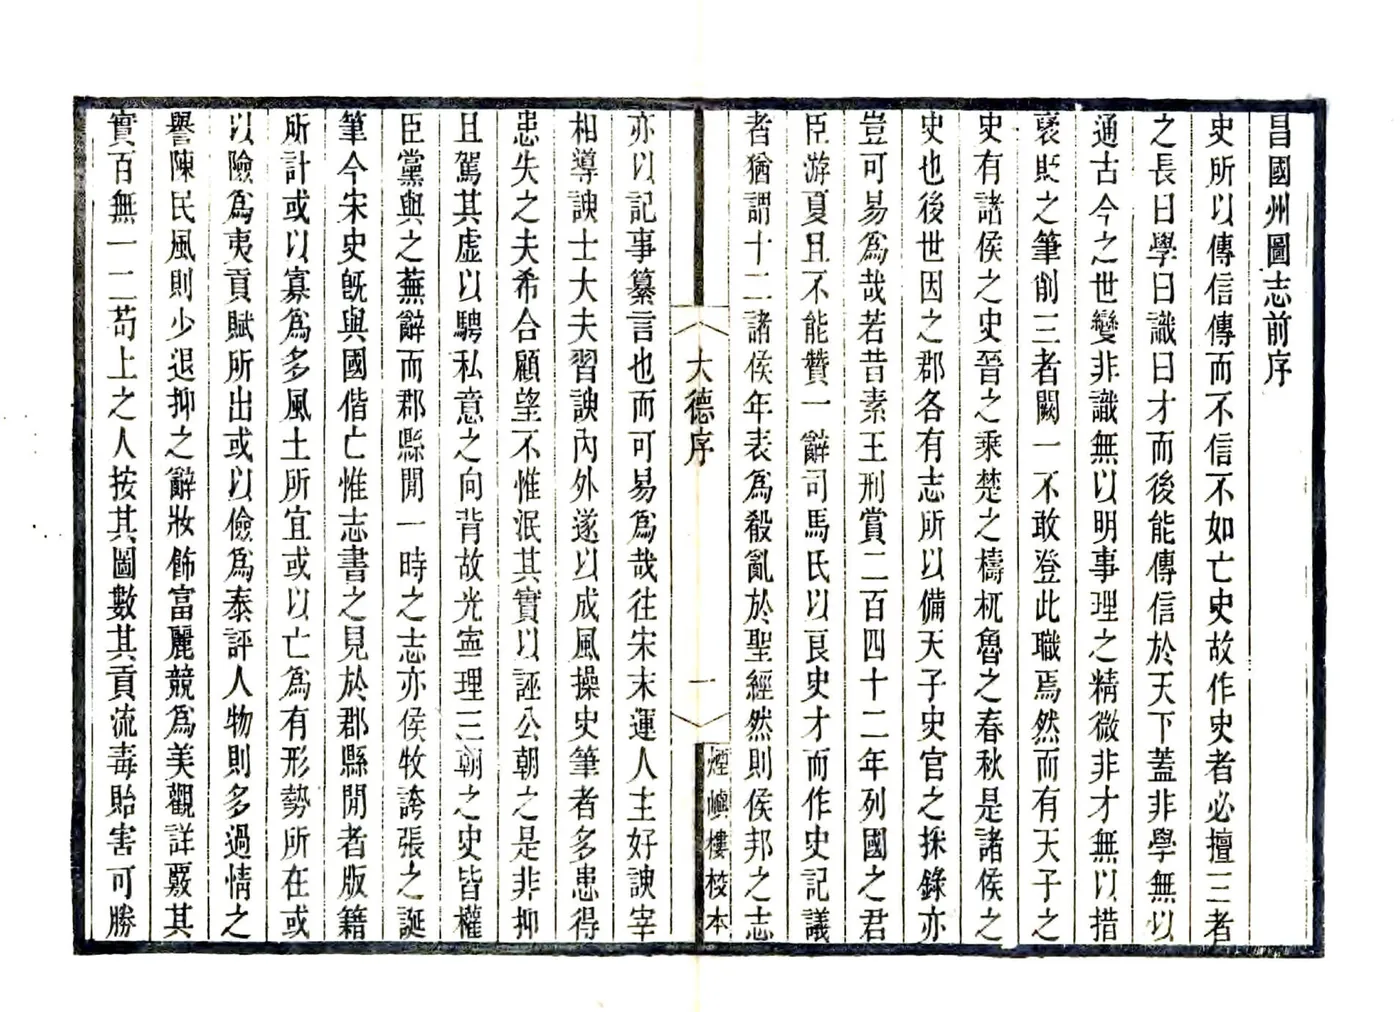 昌國州圖志前序
史所以傳信傳而不信不如亡史故作史者必擅三者
之長曰學曰識曰才而後能傳信於天下蓋非學無以
通古今之世變非識無以明事理之精微非才無以措
褒貶之筆削三者闕一不敢登此職焉然而有天子之
史有諸侯之史晉之乘楚之檮杌魯之春秋是諸侯之
史也後世因之郡各有志所以備天子史官之採錄亦
豈可易爲哉若昔素王刑賞二百四十二年列國之君
臣游夏且不能贊一辭司馬氏以良史才而作史記議
者猶謂十二諸侯年表爲殽亂於聖經然則侯邦之志
大德序
一
煙嶼樓校本
亦以記事纂言也而可易爲哉往宋末運人主好諛宰
相導諛士大夫習諛內外遂以成風操史筆者多患得
患失之夫希合顧望不惟泯其實以誣公朝之是非抑
且駕其虛以騁私意之向背故光寧理三朝之史皆權
臣黨與之蕪辭而郡縣閒一時之志亦侯牧誇張之誕
筆今宋史旣與國偕亡惟志書之見於郡縣閒者版籍
所計或以寡爲多風土所宜或以亡爲有形勢所在或
以險爲夷貢賦所出或以儉爲泰評人物則多過情之
譽陳民風則少退抑之辭妝飾富麗競爲美觀詳覈其
實百無一二苟上之人按其圖數其貢流毒貽害可勝